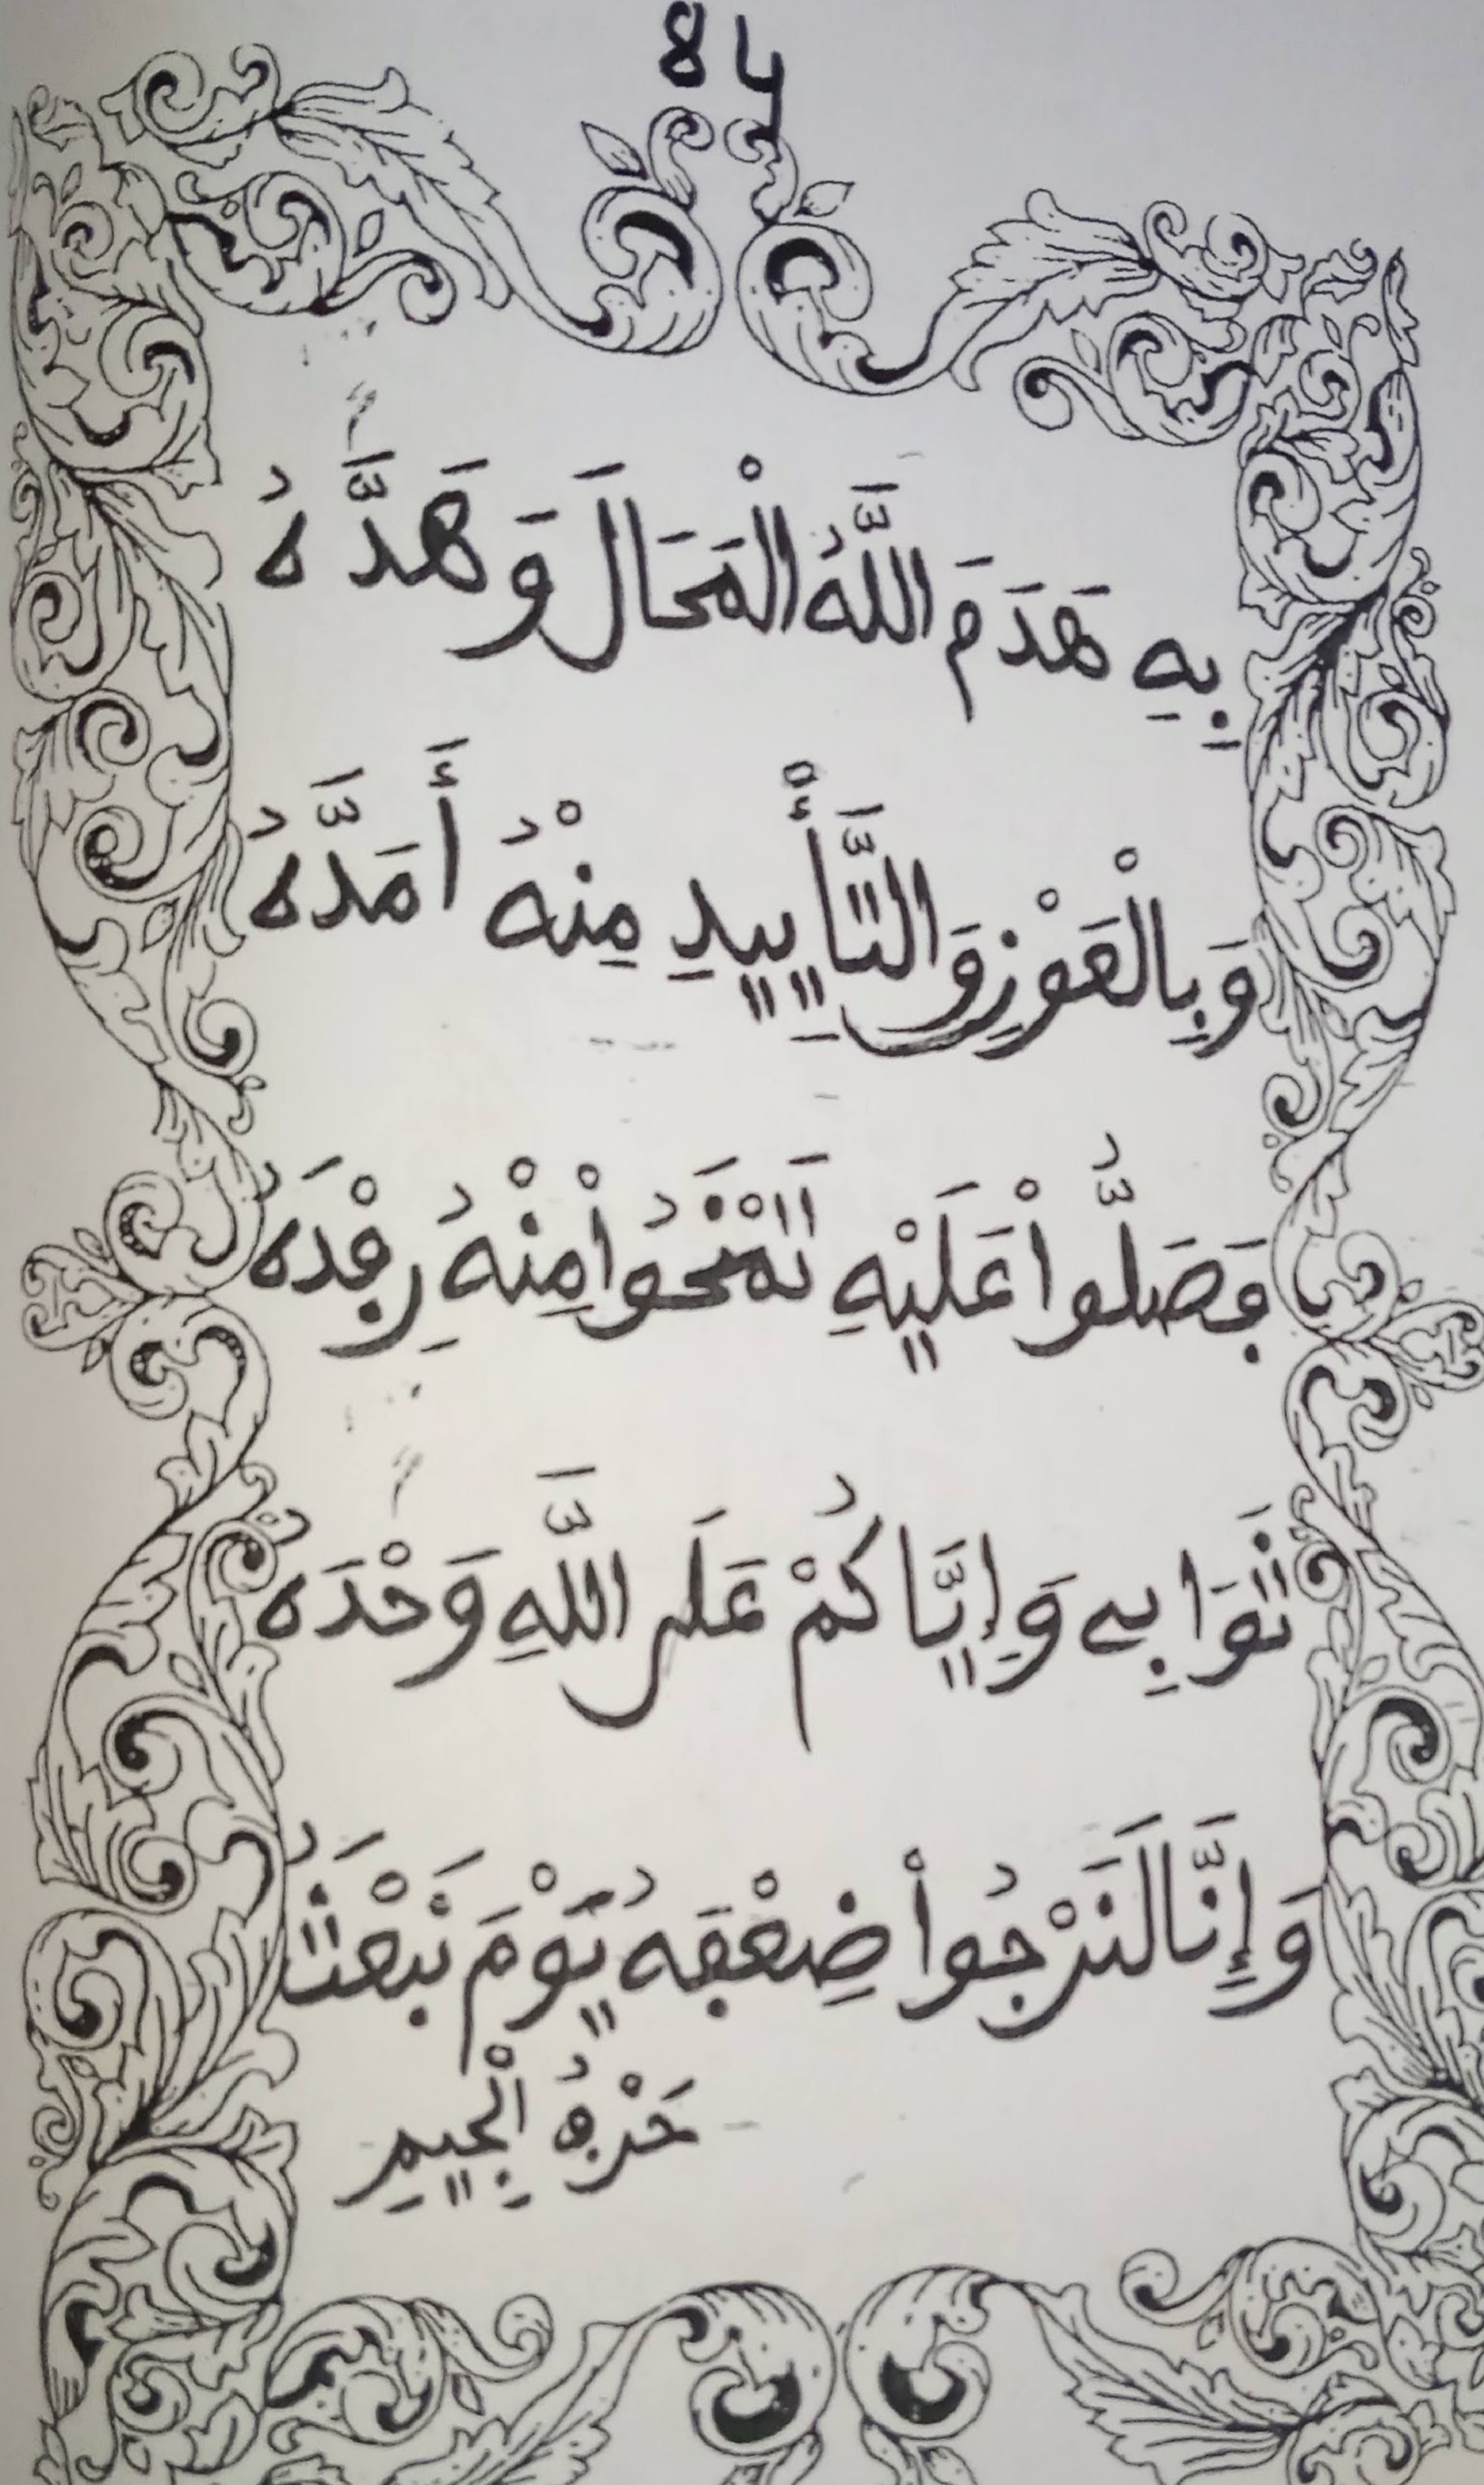 84
بِهِ هَدَمَ اللَّهُ الْمَحَالَ وَهَدَّهُ
وَبِالْعَوْنِ وَالتَّأْيِيدِ مِنْهُ أَمَدَّهُ
ڢَصَلُّواْ عَلَيْهِ تَمْنَحُواْ مِنْهُ رِڢْدَهُ
ثَوَابِي وَإِيَّاكُمْ عَلَى اللَّهِ وَحْدَهُ
وَإِنَّا لَنَرْجُواْ ضِعْڢَهُ يَوْمَ نَبْعَثُ
حَرْڢُ الْجِيمِ